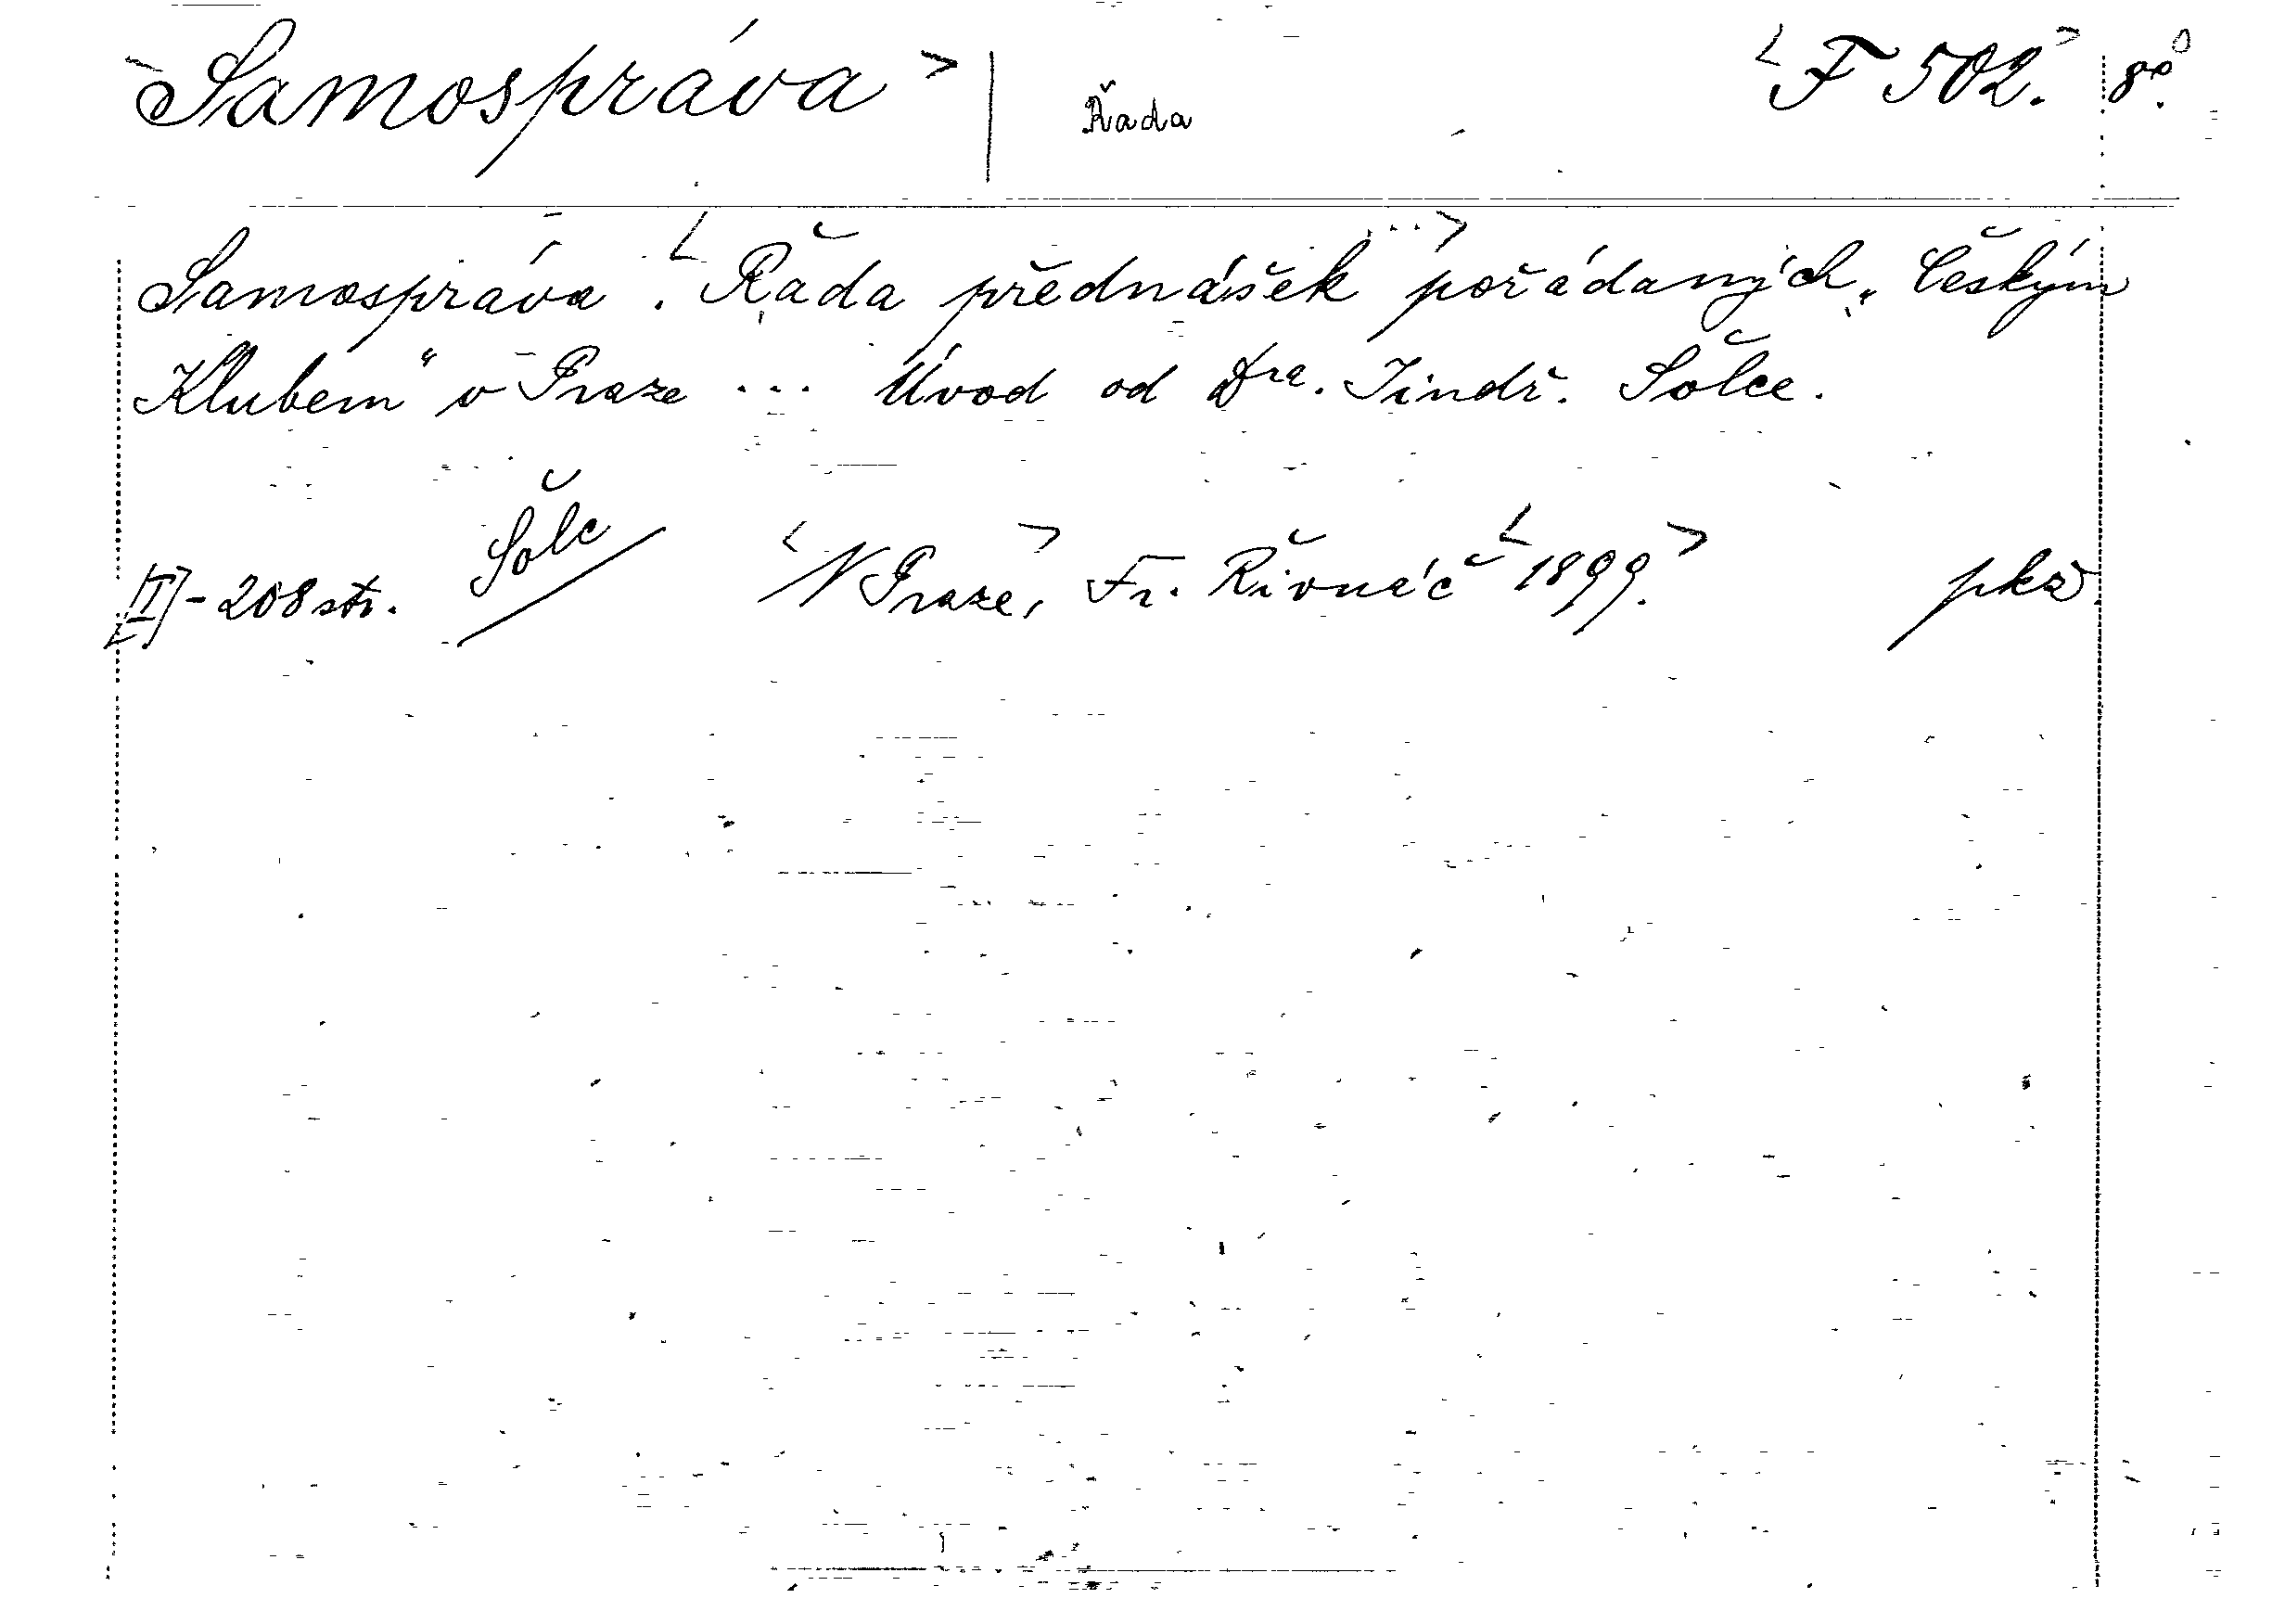 <Samospráva> | Řada <F 502.> 8°.
Samospráva. <Řada přednášek ...> pořádaných „Českým
Klubem“ v Praze ... Úvod od Dra. Jindř. Šolce.
Šolc
[I]-208 str. <V Praze,> Fr. Řivnáč <1899.> pkž